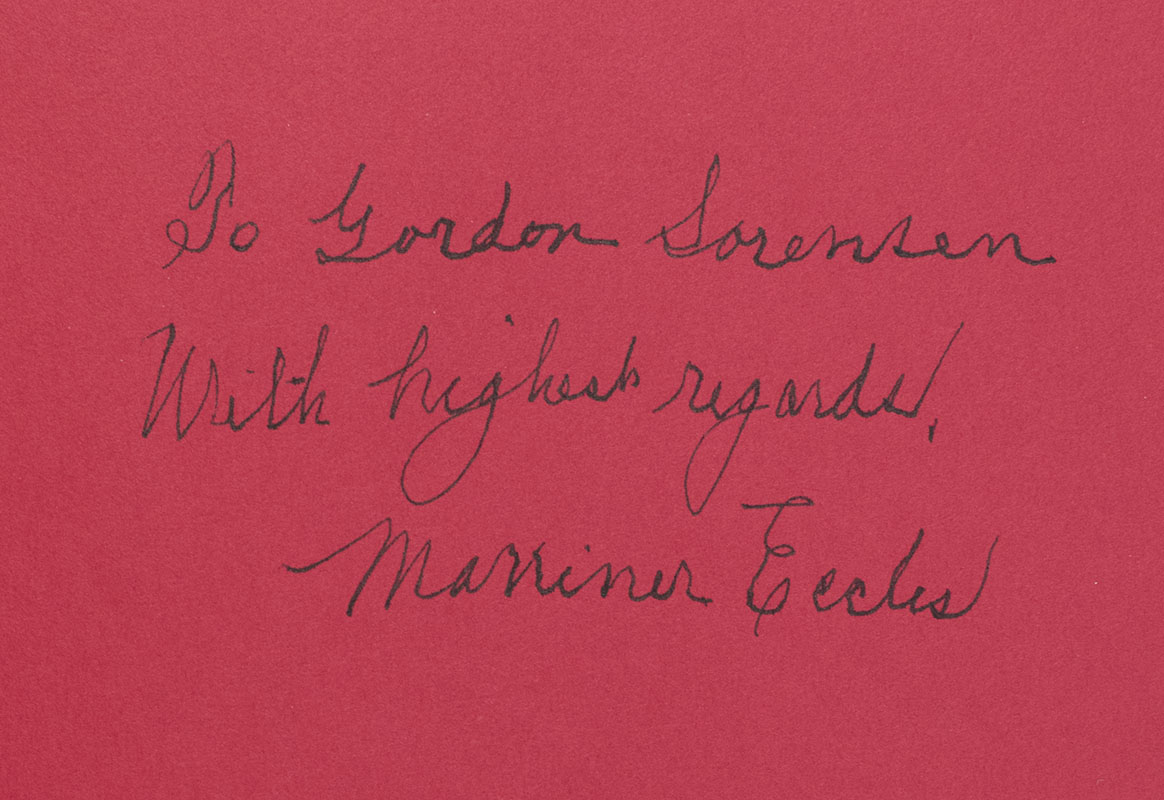 To Gordon Sorensen
With highest regards,
Marriner Eccles